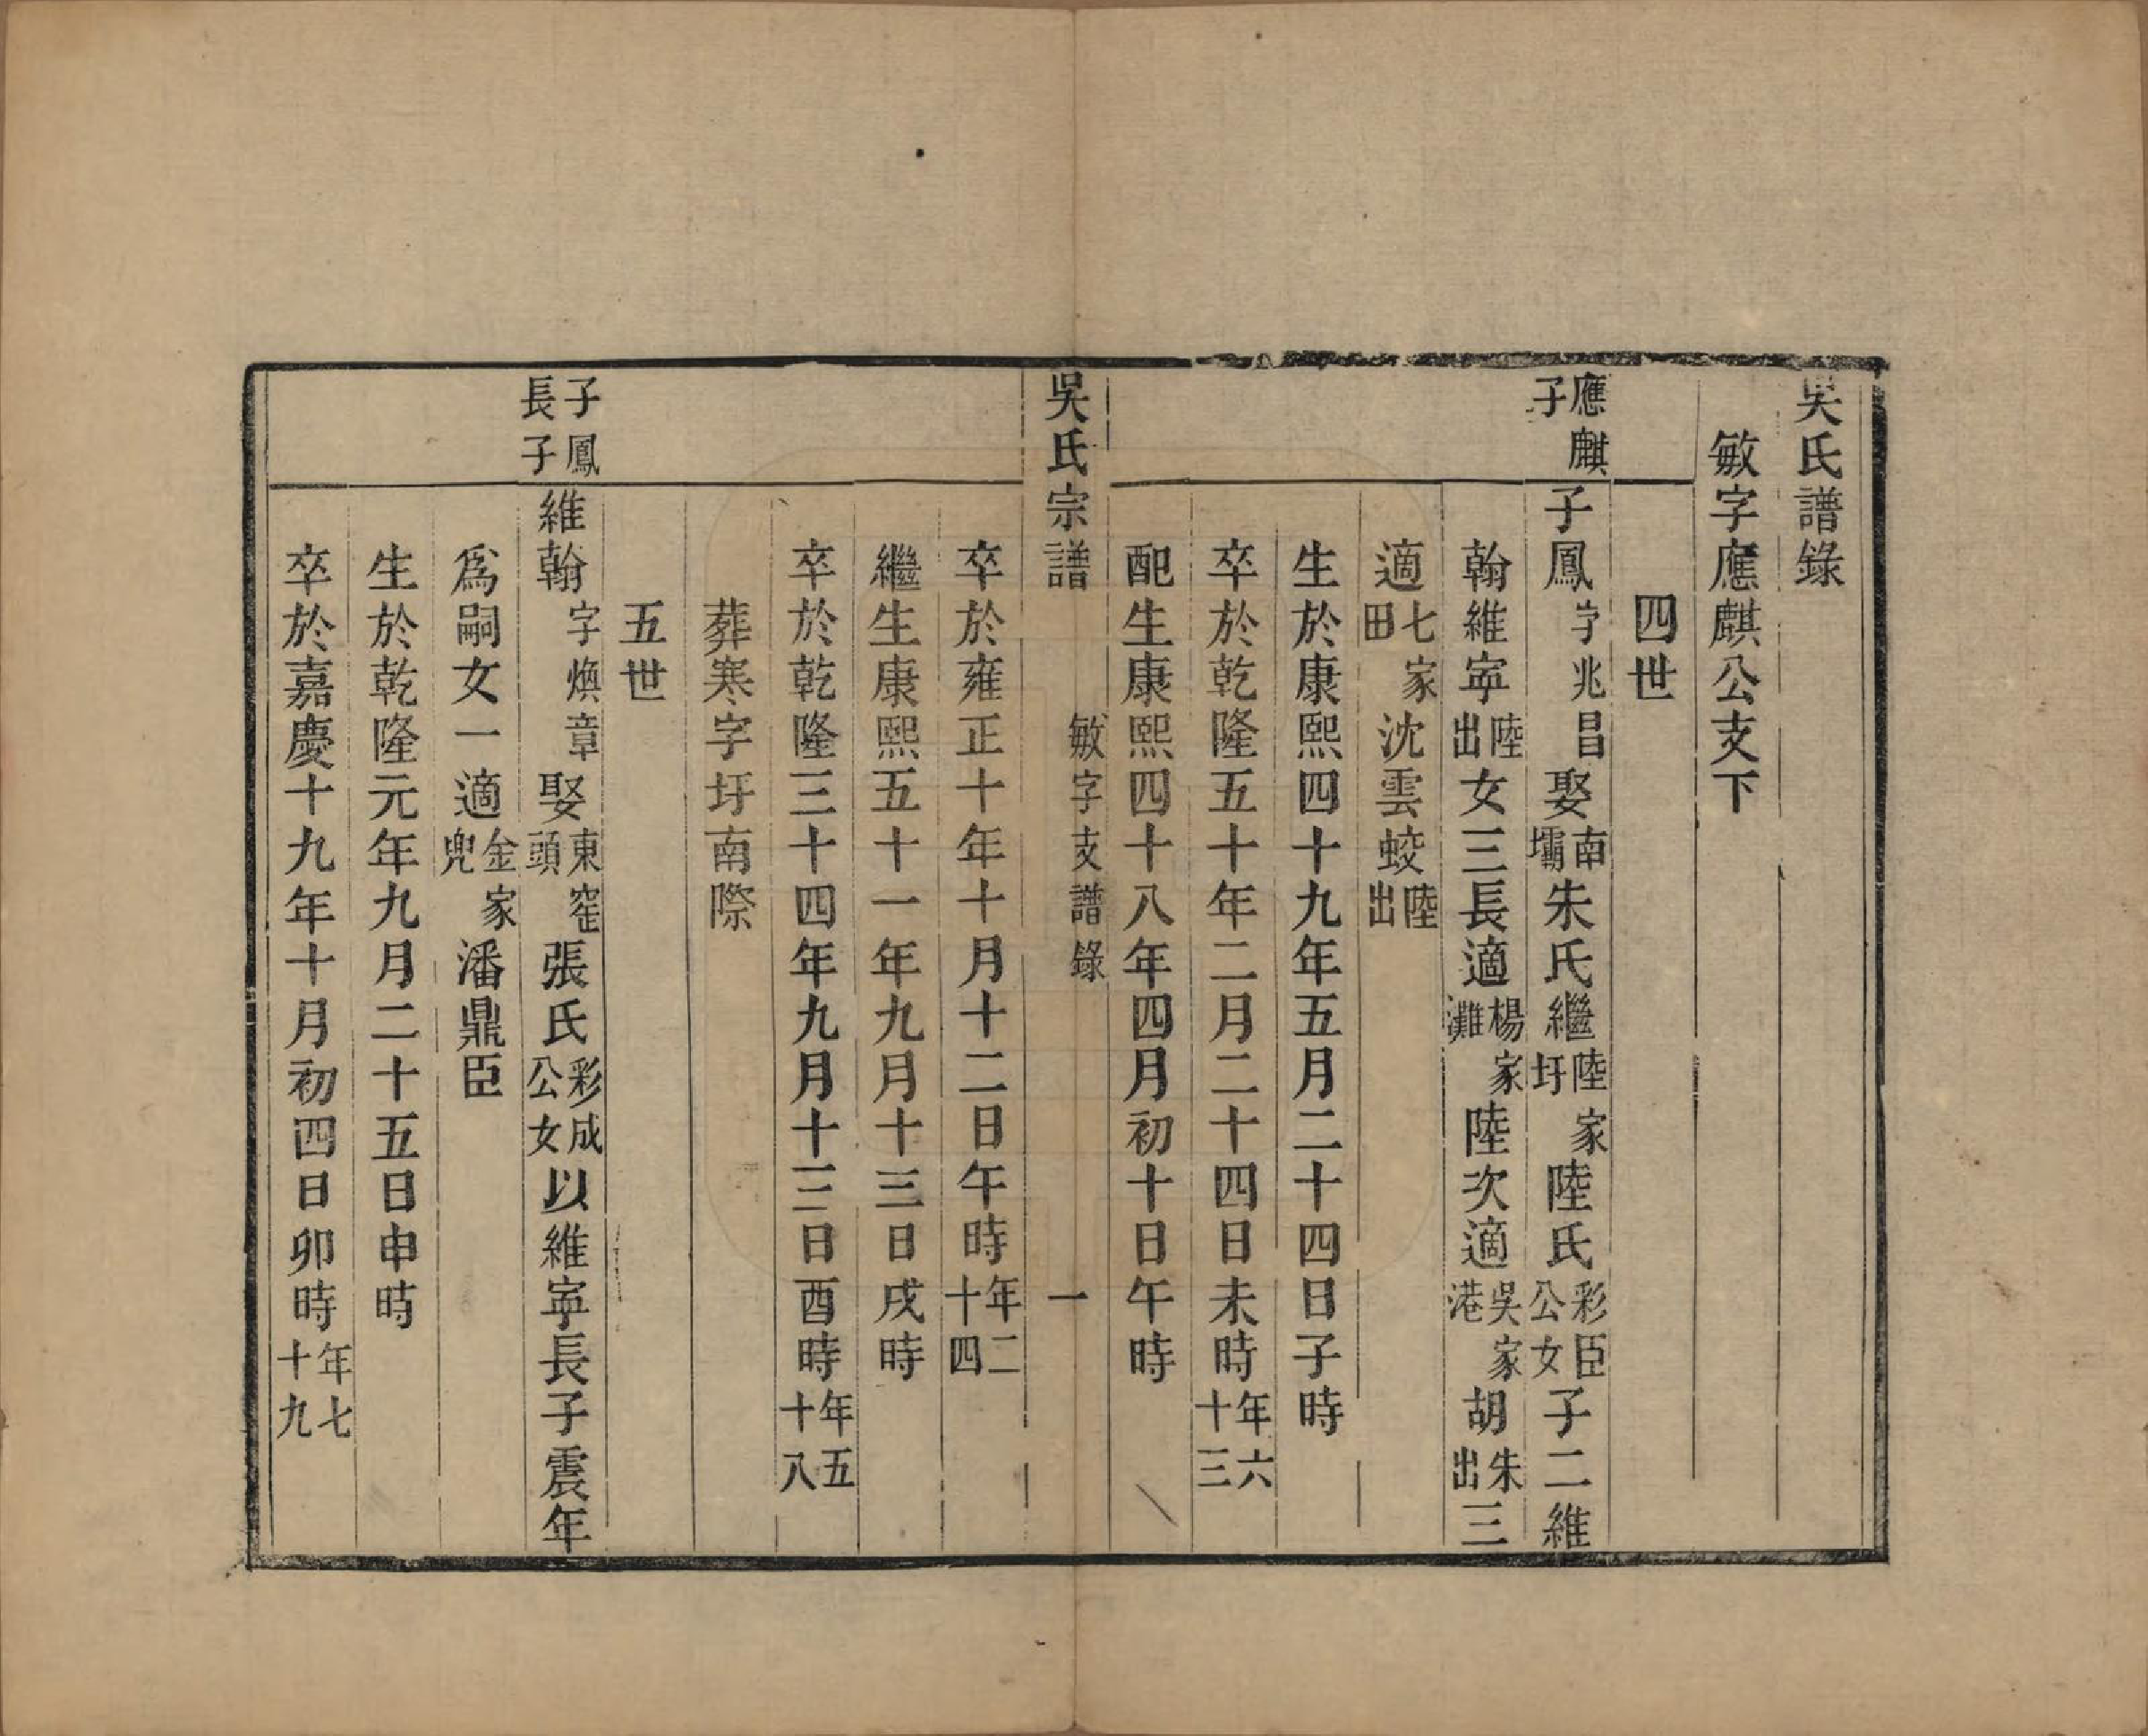 吳氏譜錄
敏字應麒公支下
四世
應麒
子
子鳳字兆昌娶南壩朱氏繼陸家圩陸氏彩臣公女子二維
翰維寧陸出女三長適楊家灘陸次適吳家港胡朱出三
適七家田沈雲蛟陸出
生於康熙四十九年五月二十四日子時
卒於乾隆五十年二月二十四日未時年六十三
配生康熙四十八年四月初十日午時
吳氏宗譜 敏字支譜錄 一
卒於雍正十年十月十二日午時年二十四
繼生康熙五十一年九月十三日戌時
卒於乾隆三十四年九月十三日酉時年五十八
葬寒字圩南際
五世
子鳳
長子
維翰字煥章娶東窰頭張氏彩成公女以維寧長子震年
爲嗣女一適金家兜潘鼎臣
生於乾隆元年九月二十五日申時
卒於嘉慶十九年十月初四日卯時年七十九